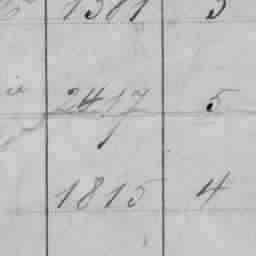 1381 3
2417 5
1815 4